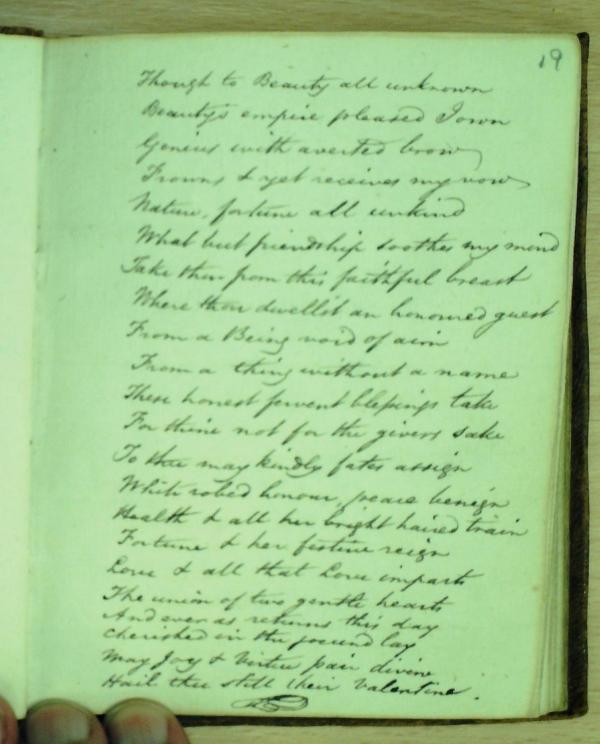 19
Though to Beauty all unknown
Beauty's empire pleased I own
Genius with averted brow
Frowns & yet receives my vow
Nature, fortune all unkind
What but friendship soothes my mind
Take then from this faithful breast
Where thou dwell'st an honoured guest
From a Being void of aim
From a thing without a name
These honest fervent blessings take
For thine not for the givers sake
To thee may kindly fates assign
White robed honour, peace benign
Health & all her bright haired train
Fortune & her festive reign
Love & all that Love imparts
The union of two gentle hearts
And ever as returns this day
Cherished in the jocund lay
May Joy & Virtue pair divine
Hail thee still their Valentine.